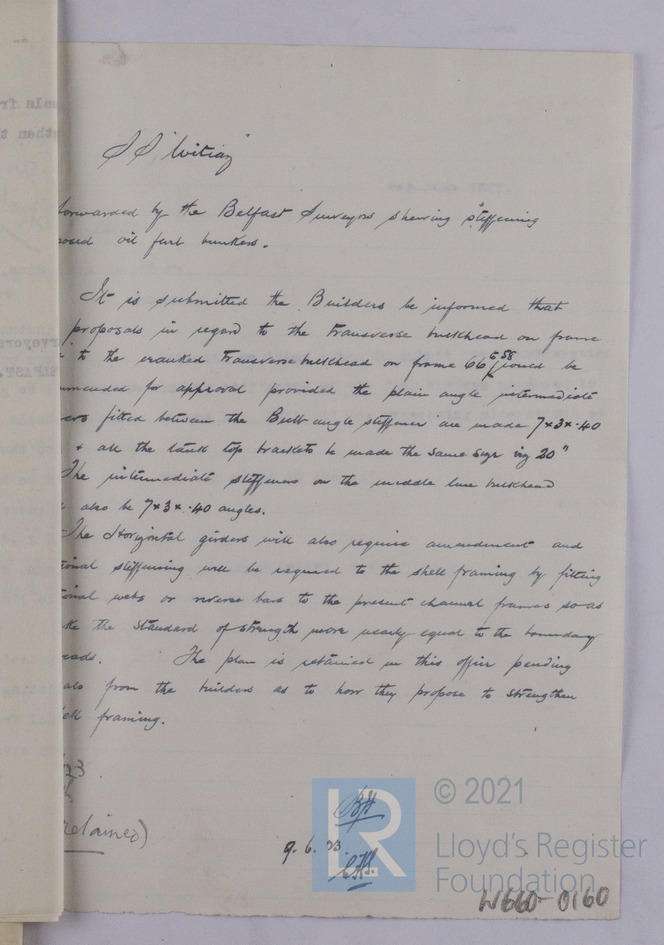 SS "Witiaz"
forwarded by the Belfast Surveyors shewing stiffening
posed oil fuel bunkers.
It is submitted the Builders be informed that
proposals in regard to the transverse bulkhead on frame
to the cranked transverse bulkhead on frame 66 could be
mmended for approval provided the plain angle intermediate
ers fitted between the Bulb angle stiffener are made 7x3x.40
+ all the tank top brackets be made the same size viz 20"
The intermediate stiffeners on the middle line bulkhead
also be 7x3x.40 angles.
The Horizontal girders will also require amendment and
tional stiffening will be required to the shell framing by fitting
tional webs or reverse bars to the present channel frames so as
ke the standard of strength more nearly equal to the boundary
eads. The plan is retained in this office pending
als from the builders as to how they propose to strengthen
ell framing.
23
retained)
9.6.23
© 2021
LR
Lloyd's Register
Foundation
W660-0160